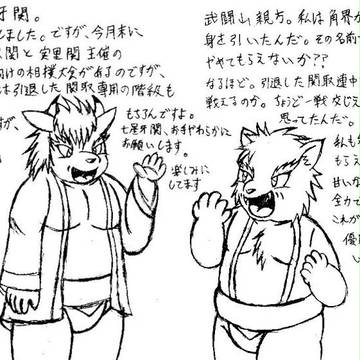 牙関。
しました。ですが、今月末に
関と実里関主催の
向けの相撲大会があるのですが、
は引退した関取専用の階級も
すが、
もちろんですよ。
七星牙関、お手やわらかに
お願いします。
楽しみに
してます
武闘山親方。私は角界か
身を引いたんだ。その名前で
やめてもらえないか??
なるほど。引退した関取連中と
戦えるのか。ちょうど一戦 交じえ
思ってたんだ。
私も
甘い
全力で
これが
優
い